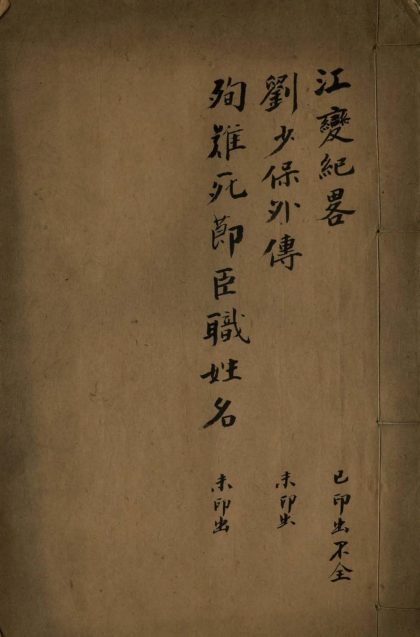 江變紀畧 已印出不全
劉少保外傳 未印出
殉難死節臣職姓名 未印出